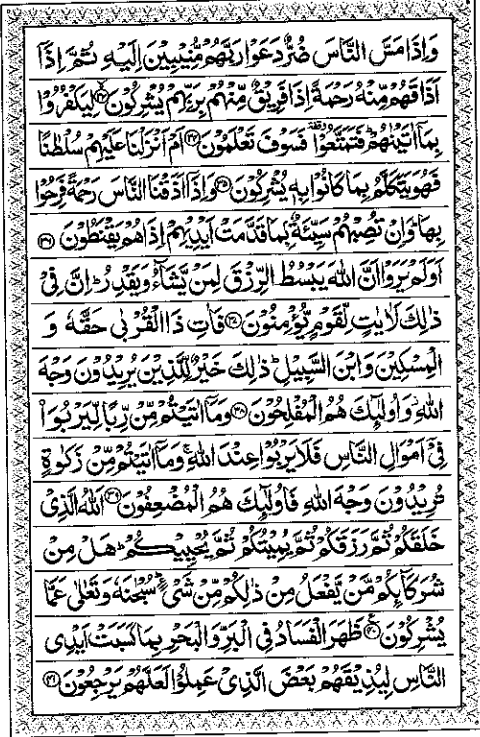 وَاِذَا مَسَّ النَّاسَ ضُرٌّ دَعَوْا رَبَّهُمْ مُّنِيْبِيْنَ اِلَيْهِ ثُمَّ اِذَاۤ
اَذَاقَهُمْ مِّنْهُ رَحْمَةً اِذَا فَرِيْقٌ مِّنْهُمْ بِرَبِّهِمْ يُشْرِكُوْنَ ﴿۳۳﴾ لِيَكْفُرُوْا
بِمَاۤ اٰتَيْنٰهُمْ ؕ فَتَمَتَّعُوْا ۥ فَسَوْفَ تَعْلَمُوْنَ ﴿۳۴﴾ اَمْ اَنْزَلْنَا عَلَيْهِمْ سُلْطٰنًا
فَهُوَ يَتَكَلَّمُ بِمَا كَانُوْا بِهٖ يُشْرِكُوْنَ ﴿۳۵﴾ وَاِذَاۤ اَذَقْنَا النَّاسَ رَحْمَةً فَرِحُوْا
بِهَا ؕ وَاِنْ تُصِبْهُمْ سَيِّئَةٌۢ بِمَا قَدَّمَتْ اَيْدِيْهِمْ اِذَا هُمْ يَقْنَطُوْنَ ﴿۳۶﴾
اَوَلَمْ يَرَوْا اَنَّ اللّٰهَ يَبْسُطُ الرِّزْقَ لِمَنْ يَّشَآءُ وَيَقْدِرُ ؕ اِنَّ فِيْ
ذٰلِكَ لَاٰيٰتٍ لِّقَوْمٍ يُّؤْمِنُوْنَ ﴿۳۷﴾ فَاٰتِ ذَا الْقُرْبٰى حَقَّهٗ وَ
الْمِسْكِيْنَ وَابْنَ السَّبِيْلِ ؕ ذٰلِكَ خَيْرٌ لِّلَّذِيْنَ يُرِيْدُوْنَ وَجْهَ
اللّٰهِ ۫ وَاُولٰٓئِكَ هُمُ الْمُفْلِحُوْنَ ﴿۳۸﴾ وَمَاۤ اٰتَيْتُمْ مِّنْ رِّبًا لِّيَرْبُوَا۠
فِيْۤ اَمْوَالِ النَّاسِ فَلَا يَرْبُوْا عِنْدَ اللّٰهِ ۚ وَمَاۤ اٰتَيْتُمْ مِّنْ زَكٰوةٍ
تُرِيْدُوْنَ وَجْهَ اللّٰهِ فَاُولٰٓئِكَ هُمُ الْمُضْعِفُوْنَ ﴿۳۹﴾ اَللّٰهُ الَّذِيْ
خَلَقَكُمْ ثُمَّ رَزَقَكُمْ ثُمَّ يُمِيْتُكُمْ ثُمَّ يُحْيِيْكُمْ ؕ هَلْ مِنْ
شُرَكَآئِكُمْ مَّنْ يَّفْعَلُ مِنْ ذٰلِكُمْ مِّنْ شَيْءٍ ؕ سُبْحٰنَهٗ وَتَعٰلٰى عَمَّا
يُشْرِكُوْنَ ﴿۴۰﴾ ظَهَرَ الْفَسَادُ فِي الْبَرِّ وَالْبَحْرِ بِمَا كَسَبَتْ اَيْدِي
النَّاسِ لِيُذِيْقَهُمْ بَعْضَ الَّذِيْ عَمِلُوْا لَعَلَّهُمْ يَرْجِعُوْنَ ﴿۴۱﴾